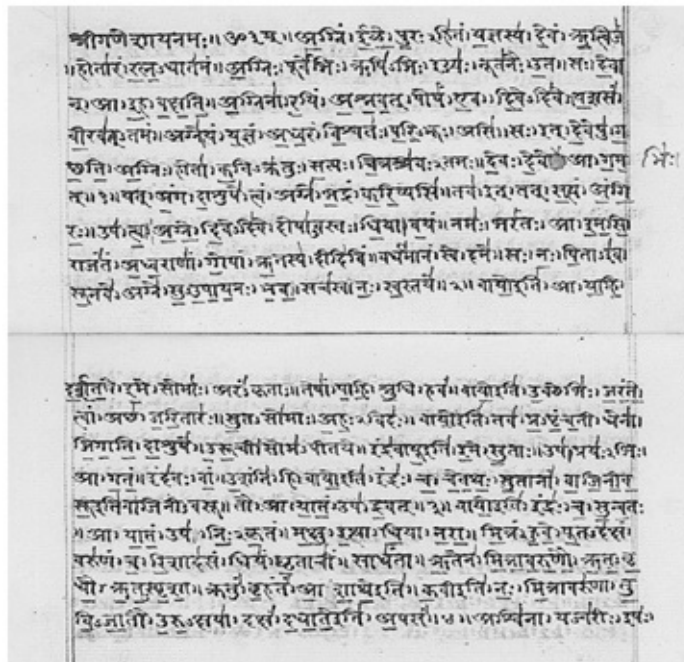 श्रीगणेशायनमः॥ॐ३म्॥अग्निं।ईळे।पुरःऽहितं।यज्ञस्य।देवं।ऋत्विजं
॥होतारं।रत्नऽधातमं॥अग्निः।पूर्वेभिः।ऋषिऽभिः।ईड्यः।नूतनैः।उत॥सः।देवा
न्।आ।इह।वक्षति॥अग्निना।रयिं।अश्नवत्।पोषं।एव।दिवेऽदिवे॥यशसं
वीरवत्ऽतमं॥अग्ने।यं।यज्ञं।अध्वरं।विश्वतः।परिऽभूः।असि॥सः।इत्।देवेषु।ग
छति॥अग्निः।होता।कविऽक्रतुः।सत्यः।चित्रश्रवःऽतमः॥देवः।देवे आ।गम भिः
त्॥१॥यत्।अंग।दाशुषे।त्वं।अग्ने।भद्रं।करिष्यसि॥तव।इत्।तत्।सत्यं।अंगि
रः॥उप।त्वा।अग्ने।दिवेऽदिवे।दोषाऽवस्तः।धिया।वयं॥नमः।भरंतः।आ।इमसि
राजंतं।अध्वराणां।गोपां।ऋतस्य।दीदिविं॥वर्धमानं।स्वे।दमे॥सः।नः।पिताऽइव
सूनवे।अग्ने।सुऽउपायनः।भव॥सचस्व।नः।स्वस्तये॥२॥वायोइति।आ।याहि।
दर्शत।इमे।सोमाः।अरंऽकृताः॥तेषां।पाहि।श्रुधि।हवं॥वायोइति।उक्थेभिः।जरंते
त्वां।अछ।जरितारः॥सुतऽसोमाः।अहःऽविदः॥वायोइति।तव।प्रऽपृंचती।धेना।
जिगाति।दाशुषे॥उरूची।सोमऽपीतये॥इंद्रवायूइति।इमे।सुताः॥उप।प्रयःऽभिः।
आ।गतं॥इंदवः।वां।उशंति।हि॥वायोइति।इंद्रः।च।चेतथः।सुतानां।वाजिनीव
सूइतिवाजिनीऽवसू॥तौ।आ।यातं।उप।द्रवत्॥३॥वायोइति।इंद्रः।च।सुन्वतः
॥आ।यातं।उप।निःऽकृतं॥मक्षु।इत्था।धिया।नरा॥मित्रं।हुवे।पूतऽदक्षं
वरुणं।च।रिशादसं॥धियं।घृताचीं।साधंता॥ऋतेन।मित्रावरुणौ।ऋतऽवृ
धौ।ऋतऽस्पृशा॥क्रतुं।बृहंतं।आ शाथेइति॥कवीइति।नः।मित्रावरुणा।तु
विऽजातौ।उरुऽक्षया॥दक्षं।दधातेइति।अपसं॥४॥अश्विना।यज्वरीः।इषः।